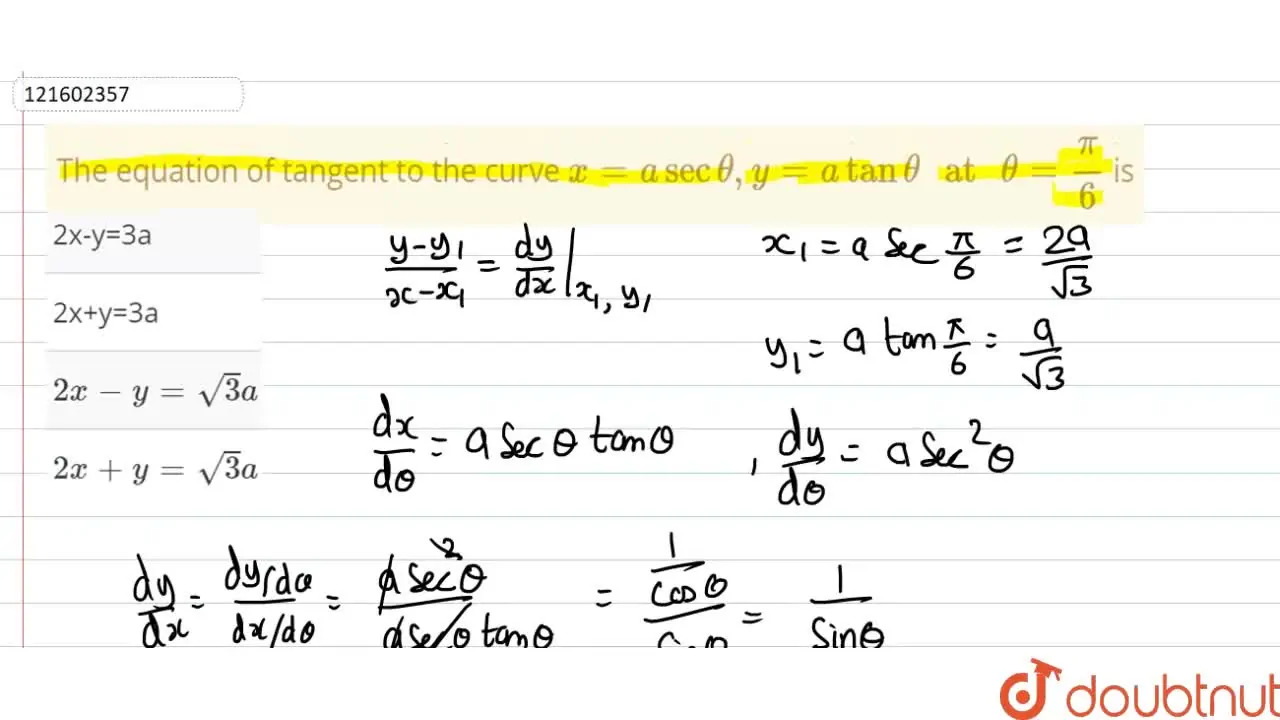 121602357
The equation of tangent to the curve x = a sec θ, y = a tan θ at θ = π/6 is
2x-y=3a
2x+y=3a
2x − y = √3a
2x + y = √3a
(y-y₁)/(x-x₁) = dy/dx |x₁, y₁
x₁ = a sec π/6 = 2a/√3
y₁ = a tan π/6 = a/√3
dx/dθ = a sec θ tan θ , dy/dθ = a sec² θ
dy/dx = (dy/dθ)/(dx/dθ) = (a sec² θ)/(a sec θ tan θ) = (1/cos θ)/ = 1/sin θ
doubtnut